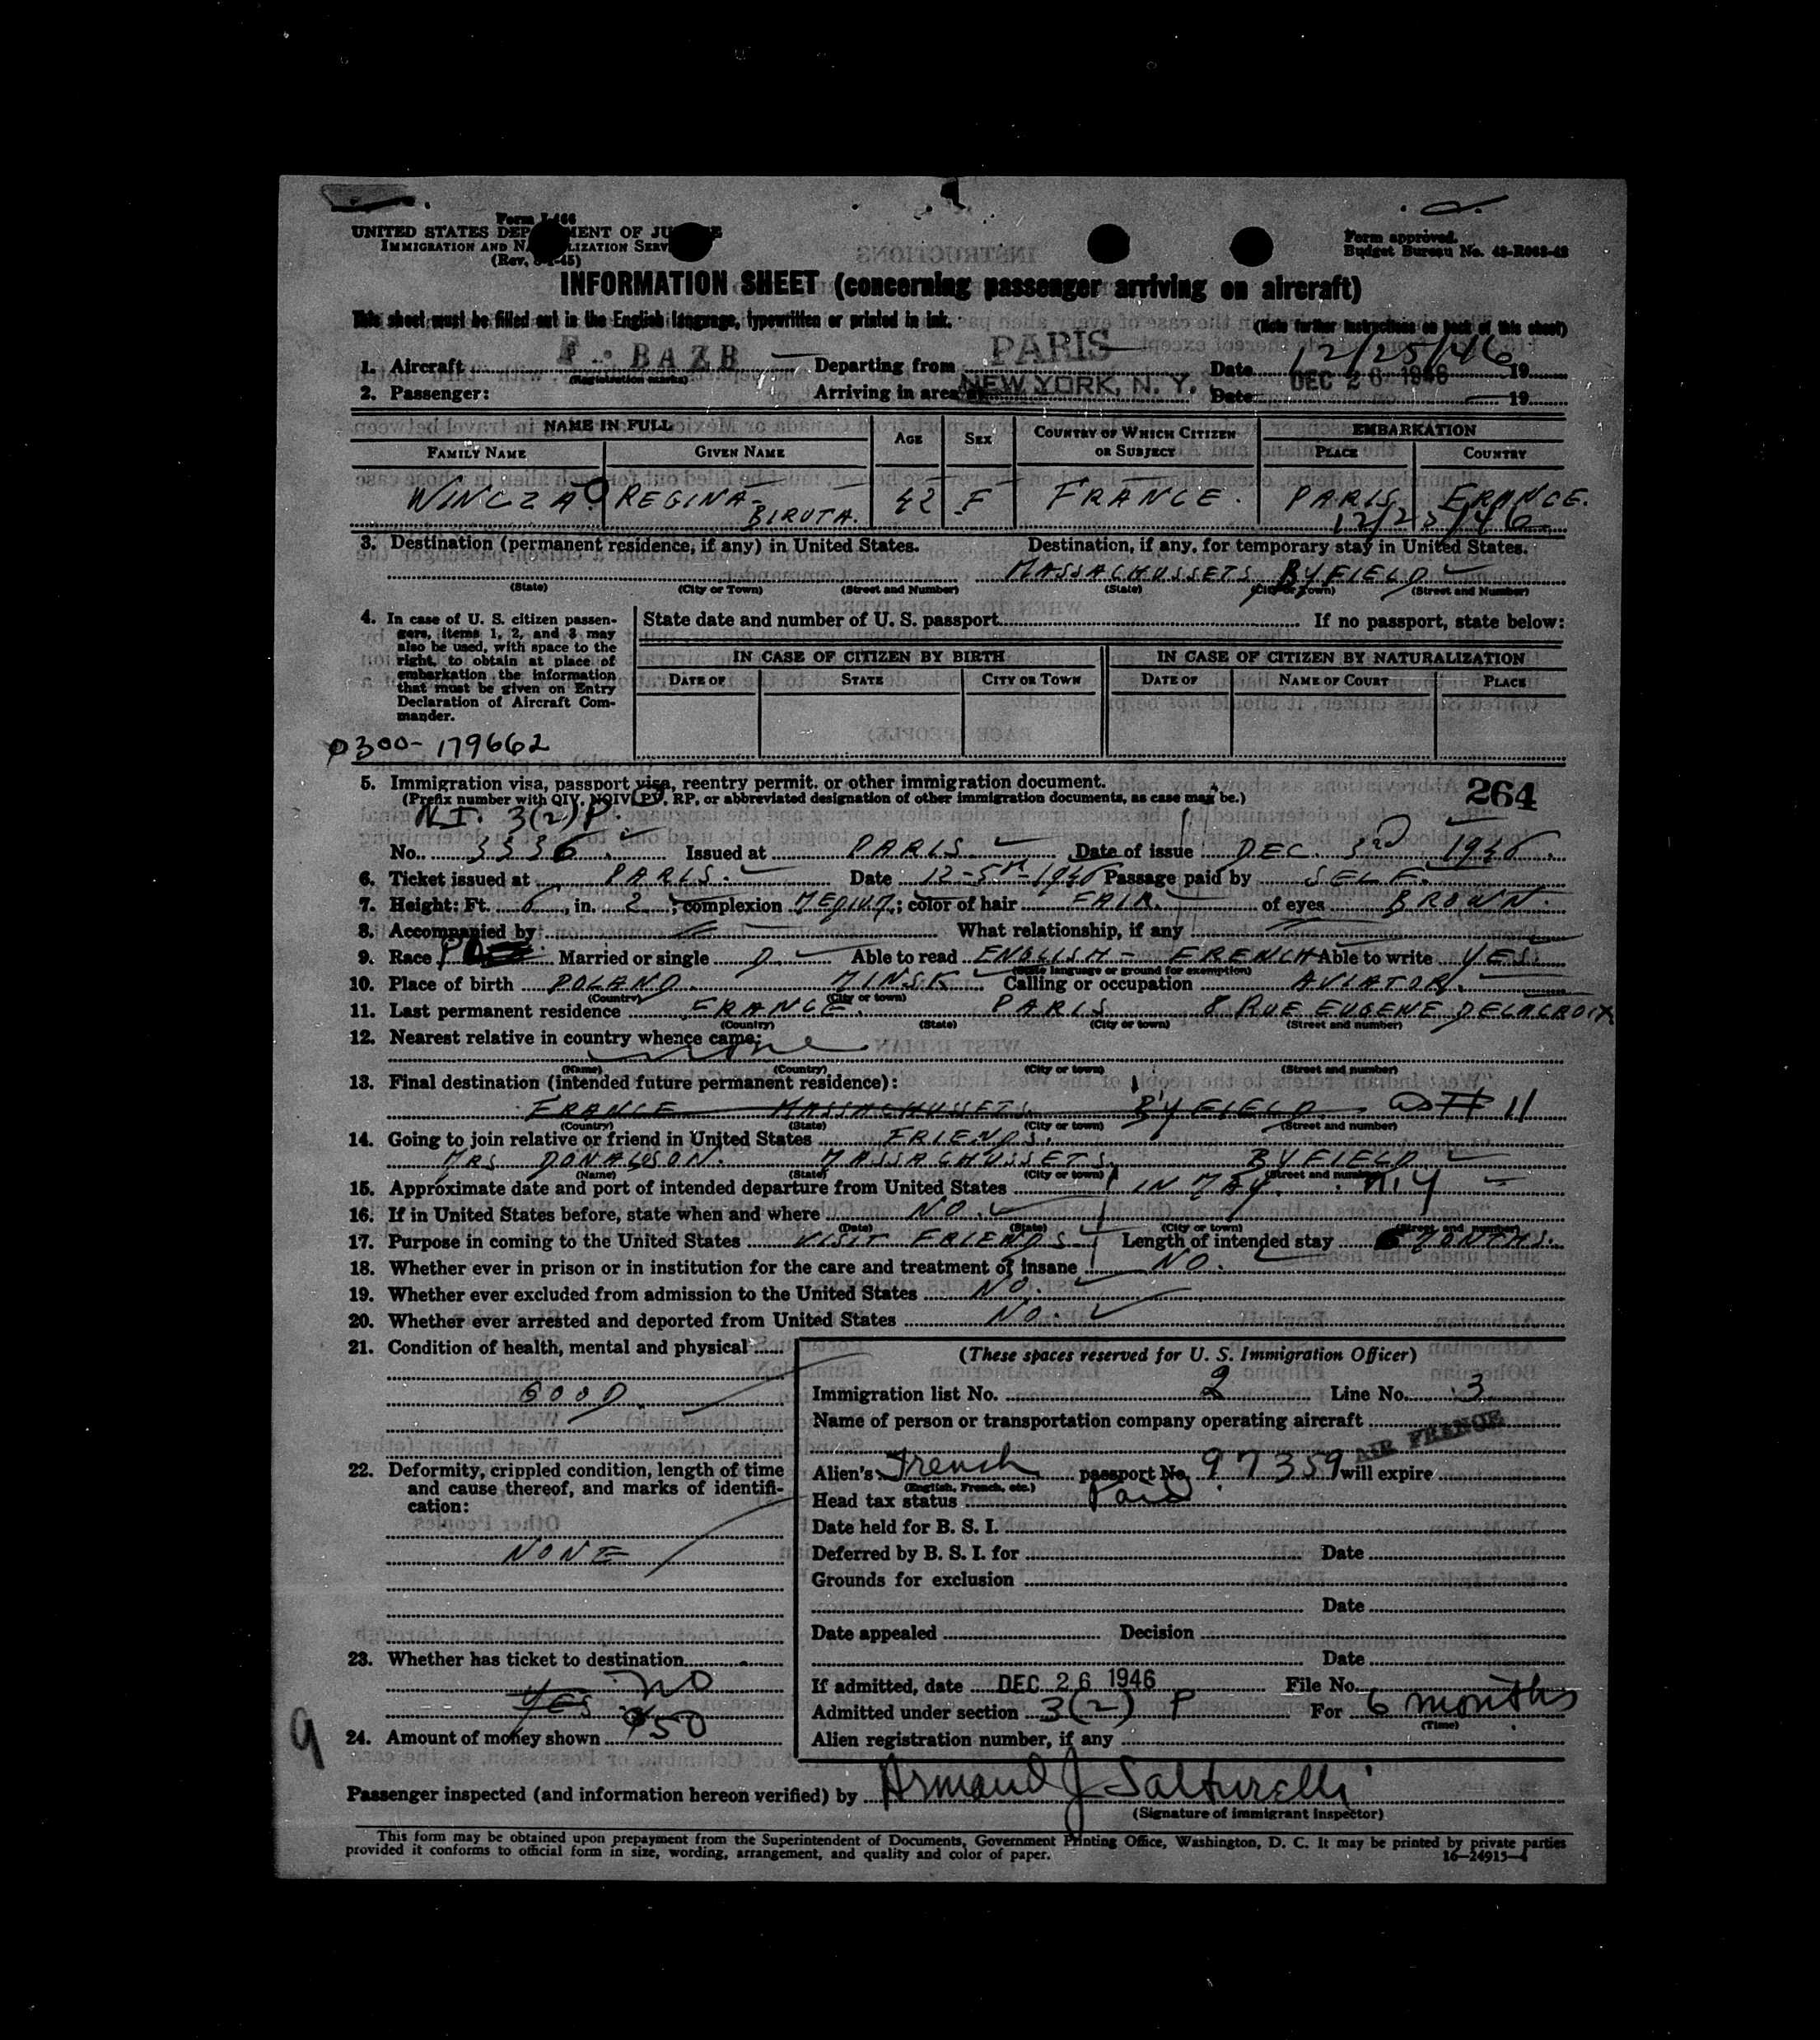 Form I-466
UNITED STATES DEPARTMENT OF JUSTICE
IMMIGRATION AND NATURALIZATION SERVICE
(Rev.
Form approved.
Budget Bureau No. 43-R063-43
INFORMATION SHEET (concerning passenger arriving on aircraft)
This sheet must be filled out in the English language, typewritten or printed in ink. (Note further instructions on back of this sheet)
1. Aircraft F. BAZB Departing from PARIS Date 12/25/46 19
(Registration marks)
2. Passenger: Arriving in area NEW YORK, N. Y. Date DEC 26 1946 19
NAME IN FULL AGE SEX COUNTRY OF WHICH CITIZEN OR SUBJECT EMBARKATION
FAMILY NAME GIVEN NAME PLACE COUNTRY
WINCZA REGINA- BIRUTA. 42 F FRANCE. PARIS FRANCE.
12/25/46
3. Destination (permanent residence, if any) in United States. Destination, if any, for temporary stay in United States.
MASSACHUSSETS BYFIELD
(State) (City or Town) (Street and Number) (State) (City or Town) (Street and Number)
4. In case of U. S. citizen passengers, items 1, 2, and 3 may also be used, with space to the right, to obtain at place of embarkation the information that must be given on Entry Declaration of Aircraft Commander.
State date and number of U. S. passport If no passport, state below:
IN CASE OF CITIZEN BY BIRTH IN CASE OF CITIZEN BY NATURALIZATION
DATE OF STATE CITY OR TOWN DATE OF NAME OF COURT PLACE
0300-179662
5. Immigration visa, passport visa, reentry permit, or other immigration document. 264
(Prefix number with QIV, NQIV, PV, RP, or abbreviated designation of other immigration documents, as case may be.)
3(2) P.
No. 3336 Issued at PARIS. Date of issue DEC. 3rd 1946.
6. Ticket issued at PARIS. Date 12-5th-1946 Passage paid by SELF.
7. Height: Ft. , in. 2 ; complexion MEDIUM; color of hair FAIR. of eyes BROWN.
8. Accompanied by What relationship, if any
9. Race Married or single D Able to read ENGLISH - FRENCH Able to write YES
(State language or ground for exemption)
10. Place of birth POLAND. MINSK Calling or occupation AVIATOR.
(Country) (City or town)
11. Last permanent residence FRANCE. PARIS 8 RUE EUGENE DELACROIX
(Country) (State) (City or town) (Street and number)
12. Nearest relative in country whence came:
none
(Name) (Country) (City or town) (Street and number)
13. Final destination (intended future permanent residence):
FRANCE MASSACHUSSETS BYFIELD #11
(Country) (State) (City or town) (Street and number)
14. Going to join relative or friend in United States FRIENDS.
MRS DONALDSON. MASSACHUSSETS BYFIELD
(Name) (State) (City or town) (Street and number)
15. Approximate date and port of intended departure from United States IN MAY. N.Y
16. If in United States before, state when and where NO.
(Date) (State) (City or town) (Street and number)
17. Purpose in coming to the United States VISIT FRIENDS Length of intended stay 6 MONTHS.
18. Whether ever in prison or in institution for the care and treatment of insane NO.
19. Whether ever excluded from admission to the United States NO.
20. Whether ever arrested and deported from United States NO.
21. Condition of health, mental and physical
GOOD
22. Deformity, crippled condition, length of time and cause thereof, and marks of identification:
NONE
23. Whether has ticket to destination
YES no
24. Amount of money shown 950
9
(These spaces reserved for U. S. Immigration Officer)
Immigration list No. 2 Line No. 3
Name of person or transportation company operating aircraft
AIR FRANCE
Alien's French passport No. 97359 will expire
(English, French, etc.)
Head tax status Paid
Date held for B. S. I.
Deferred by B. S. I. for Date
Grounds for exclusion
Date
Date appealed Decision
Date
If admitted, date DEC 26 1946 File No.
Admitted under section 3(2) P For 6 months
(Time)
Alien registration number, if any
Passenger inspected (and information hereon verified) by Armand J Salturelli
(Signature of immigrant inspector)
This form may be obtained upon prepayment from the Superintendent of Documents, Government Printing Office, Washington, D. C. It may be printed by private parties
provided it conforms to official form in size, wording, arrangement, and quality and color of paper. 16—24915-1